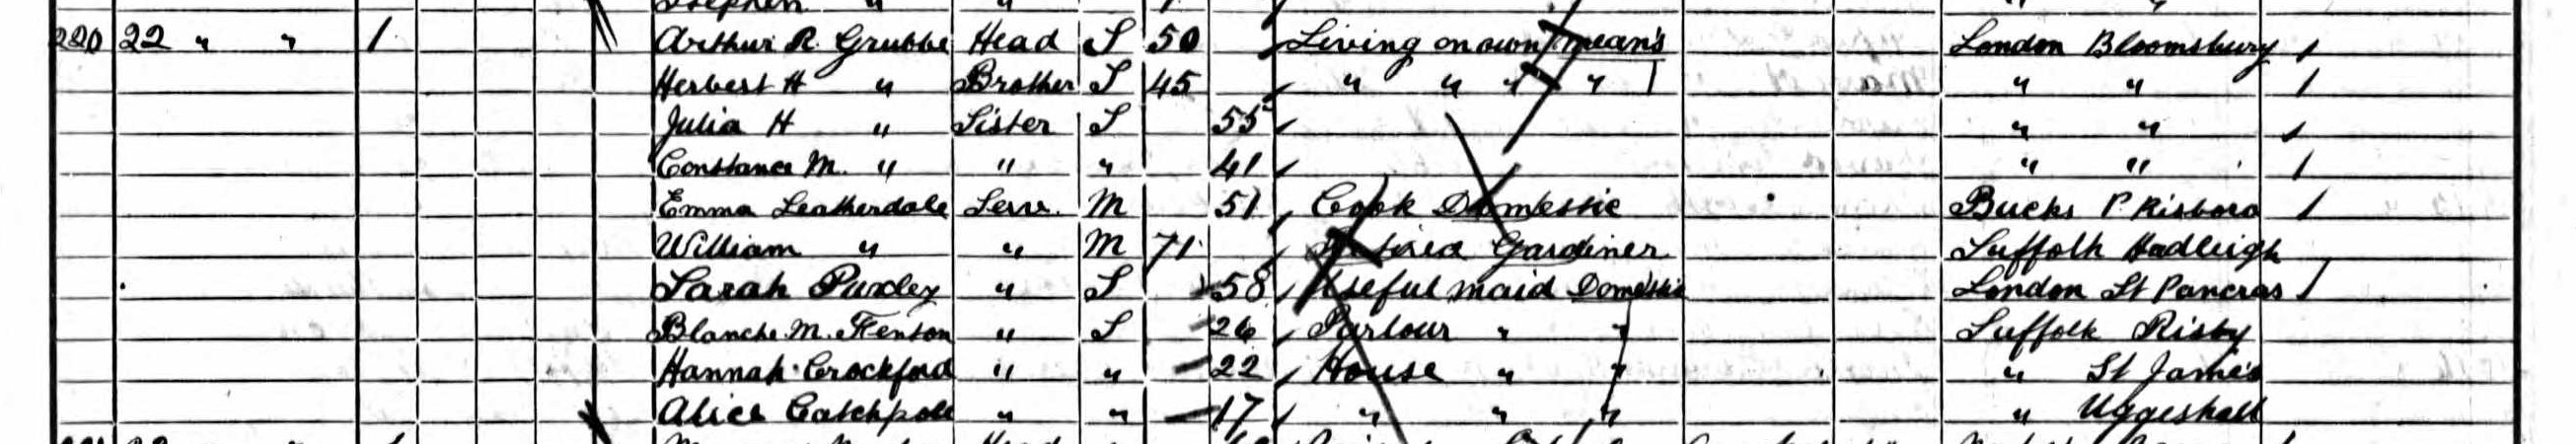 Stephen " "
220 22 " " 1 Arthur R. Grubbe Head S 50 Living on own means London Bloomsbury
Herbert H " Brother S 45 " " " " " "
Julia H " Sister S 55 " "
Constance M. " " " 41 " "
Emma Leatherdale Serv. M 51 Cook Domestic Bucks P. Risboro
William " " M 71 Retired Gardiner Suffolk Hadleigh
Sarah Purley " S 58 Useful maid Domestic London St Pancras
Blanche M. Fenton " S 26 Parlour " " Suffolk Risby
Hannah Crockford " " 22 House " " " St James
Alice Catchpole " " 17 " " " " Uggeshall
Head